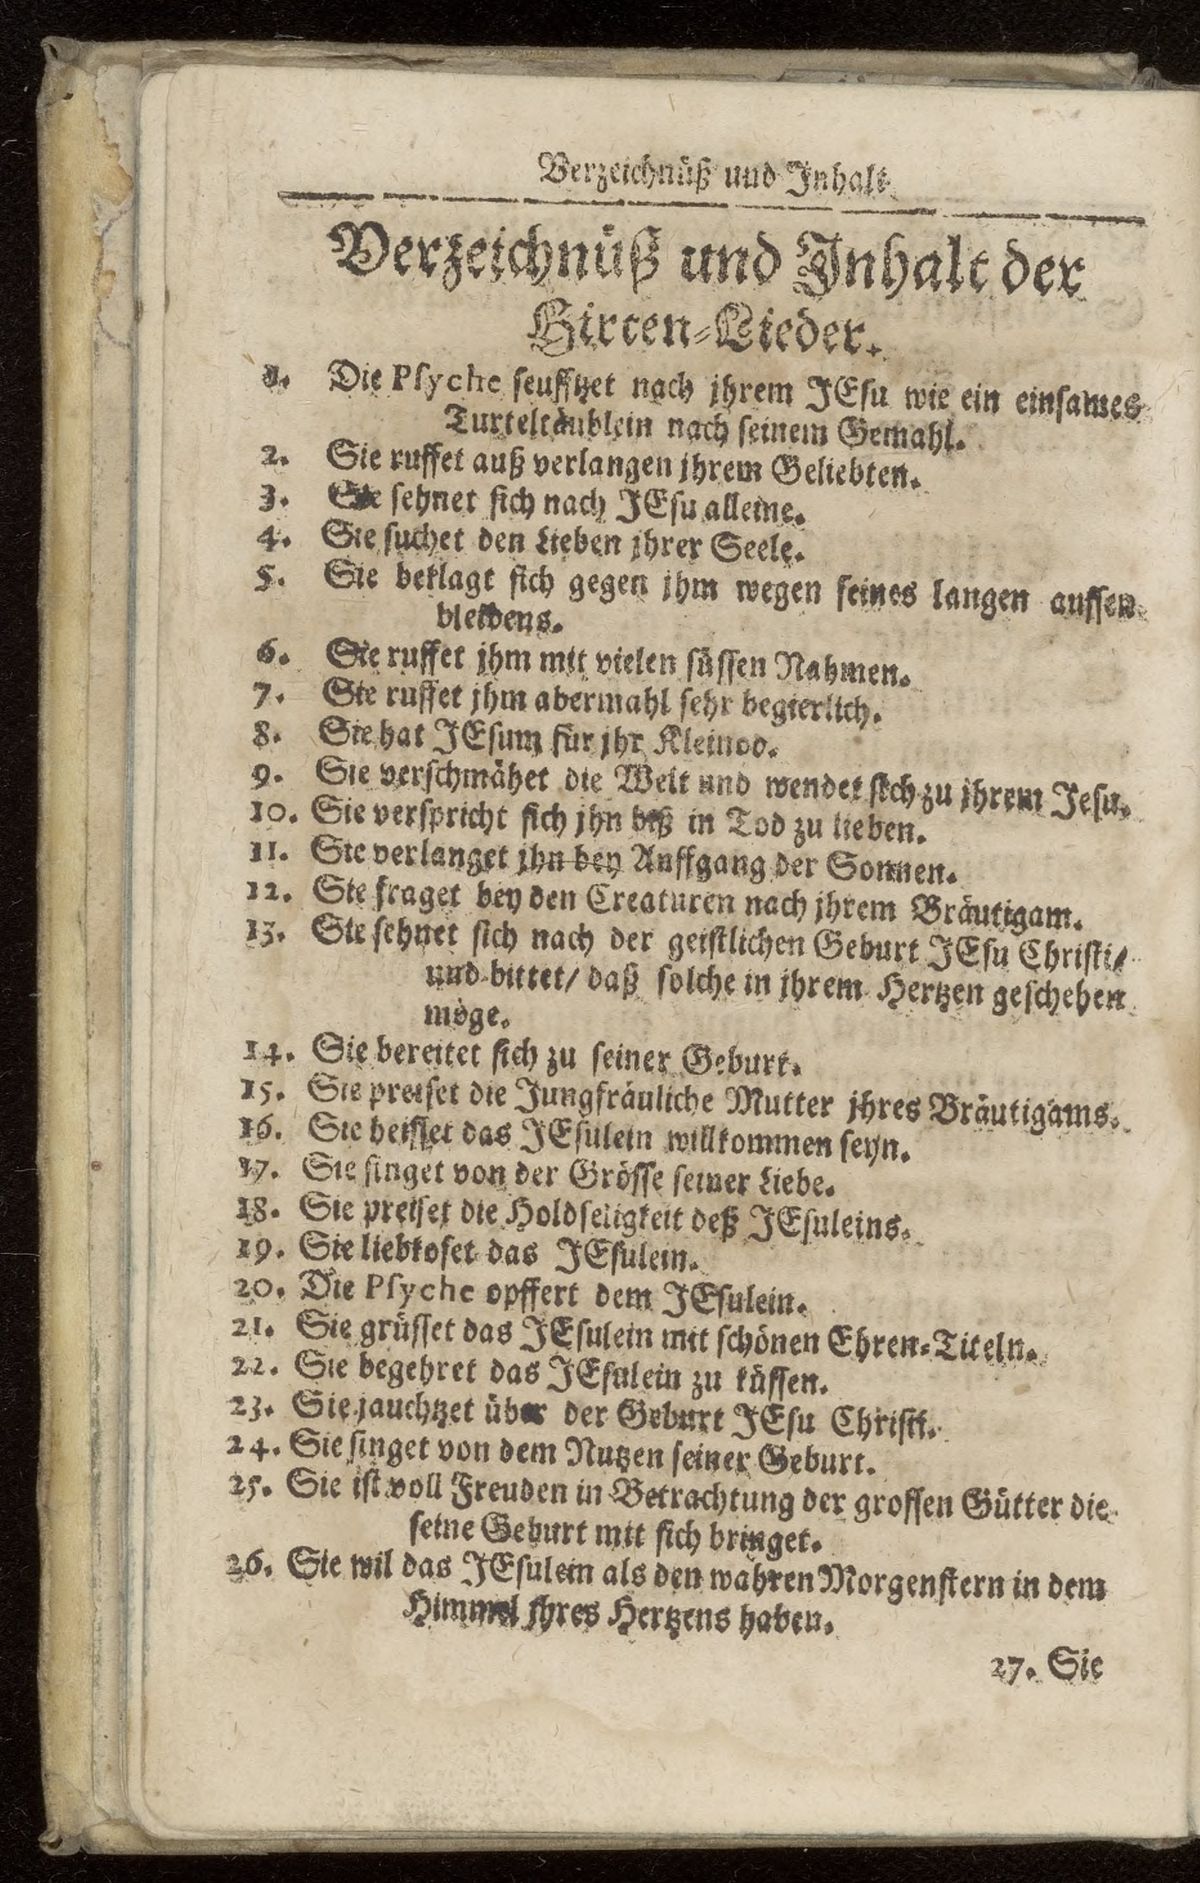 Verzeichnüß und Inhalt
Verzeichnüß und Inhalt der
Hirten-Lieder.
1. Die Psyche seufftzet nach jhrem JEsu wie ein einsames
Turteltäublein nach seinem Gemahl.
2. Sie ruffet auß verlangen jhrem Geliebten.
3. Sie sehnet sich nach JEsu alleine.
4. Sie suchet den Lieben jhrer Seele.
5. Sie beklagt sich gegen jhm wegen seines langen aussen
bleibens.
6. Sie ruffet jhm mit vielen süssen Nahmen.
7. Sie ruffet jhm abermahl sehr begierlich.
8. Sie hat JEsum für jhr Kleinod.
9. Sie verschmähet die Welt und wendet sich zu jhrem Jesu.
10. Sie verspricht sich jhn biß in Tod zu lieben.
11. Sie verlanget jhn bey Auffgang der Sonnen.
12. Sie fraget bey den Creaturen nach jhrem Bräutigam.
13. Sie sehnet sich nach der geistlichen Geburt JEsu Christi/
und bittet/ daß solche in jhrem Hertzen geschehen
möge.
14. Sie bereitet sich zu seiner Geburt.
15. Sie preiset die Jungfräuliche Mutter jhres Bräutigams.
16. Sie heisset das JEsulein willkommen seyn.
17. Sie singet von der Grösse seiner Liebe.
18. Sie preiset die Holdseligkeit deß JEsuleins.
19. Sie liebkoset das JEsulein.
20. Die Psyche opffert dem JEsulein.
21. Sie grüsset das JEsulein mit schönen Ehren-Titeln.
22. Sie begehret das JEsulein zu küssen.
23. Sie jauchtzet über der Geburt JEsu Christi.
24. Sie singet von dem Nutzen seiner Geburt.
25. Sie ist voll Freuden in Betrachtung der grossen Gütter die
seine Geburt mit sich bringet.
26. Sie wil das JEsulein als den wahren Morgenstern in dem
Himmel jhres Hertzens haben.
27. Sie